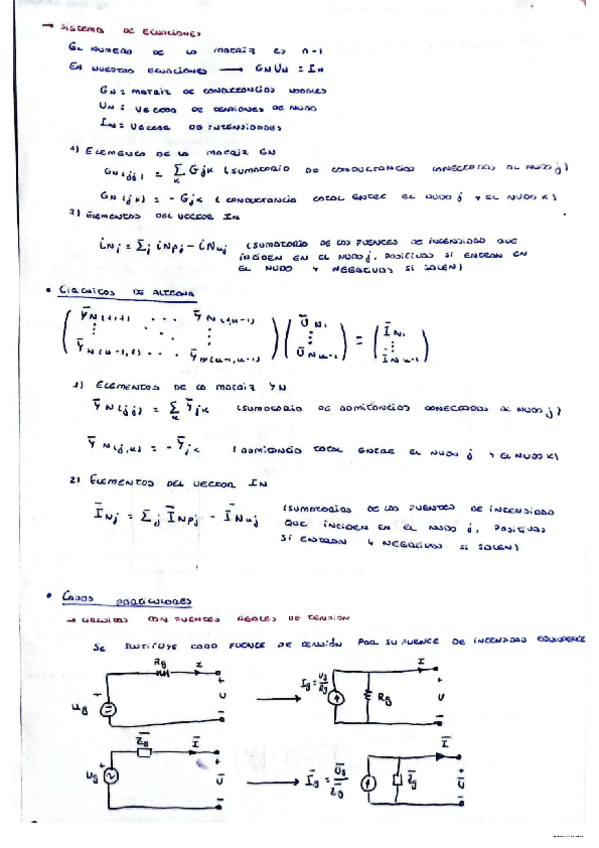 → SISTEMA DE ECUACIONES
EL NUMERO DE LA MATRIZ ES n-1
EN NUESTRAS ECUACIONES → GN UN = IN
GN = MATRIZ DE CONDUCTANCIAS NODALES
UN = VECTOR DE TENSIONES DE NUDO
IN = VECTOR DE INTENSIDADES
1) ELEMENTOS DE LA MATRIZ GN
GN(jj) = Σ_k Gjk (SUMATORIO DE CONDUCTANCIAS CONECTADAS AL NUDO j)
GN(jk) = - Gjk (CONDUCTANCIA TOTAL ENTRE EL NUDO j Y EL NUDO K)
2) ELEMENTOS DEL VECTOR IN
iNj = Σj iNpj - iNuj (SUMATORIO DE LAS FUENTES DE INTENSIDAD QUE
INCIDEN EN EL NUDO j, POSITIVAS SI ENTRAN EN
EL NUDO Y NEGATIVAS SI SALEN)
• CIRCUITOS DE ALTERNA
Y̅N(1,1) ... Y̅N(1,n-1) U̅N1 = I̅N1
⋮ ⋮ ⋮ ⋮
Y̅N(n-1,1) ... Y̅N(n-1,n-1) U̅Nn-1 I̅Nn-1
1) ELEMENTOS DE LA MATRIZ YN
Y̅N(jj) = Σ_k Y̅jk (SUMATORIO DE ADMITANCIAS CONECTADAS AL NUDO j)
Y̅N(j,k) = - Y̅jk (ADMITANCIA TOTAL ENTRE EL NUDO j Y EL NUDO K)
2) ELEMENTOS DEL VECTOR IN
I̅Nj = Σj I̅Npj - I̅Nuj (SUMATORIOS DE LAS FUENTES DE INTENSIDAD
QUE INCIDEN EN EL NUDO j, POSITIVAS
SI ENTRAN Y NEGATIVAS SI SALEN)
• CASOS PARTICULARES
→ CIRCUITOS CON FUENTES REALES DE TENSION
SE SUSTITUYE CADA FUENTE DE TENSIÓN POR SU FUENTE DE INTENSIDAD EQUIVALENTE
Rg I + U - Ug → Ig = Ug/Rg Rg I + U -
Z̅g I̅ + U̅ - Ug → I̅g = U̅g/Z̅g Z̅g I̅ + U̅ -